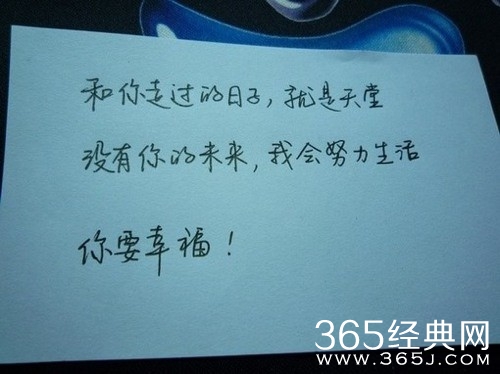 和你走过的日子，就是天堂
没有你的未来，我会努力生活
你要幸福！
365经典网
www.365j.com